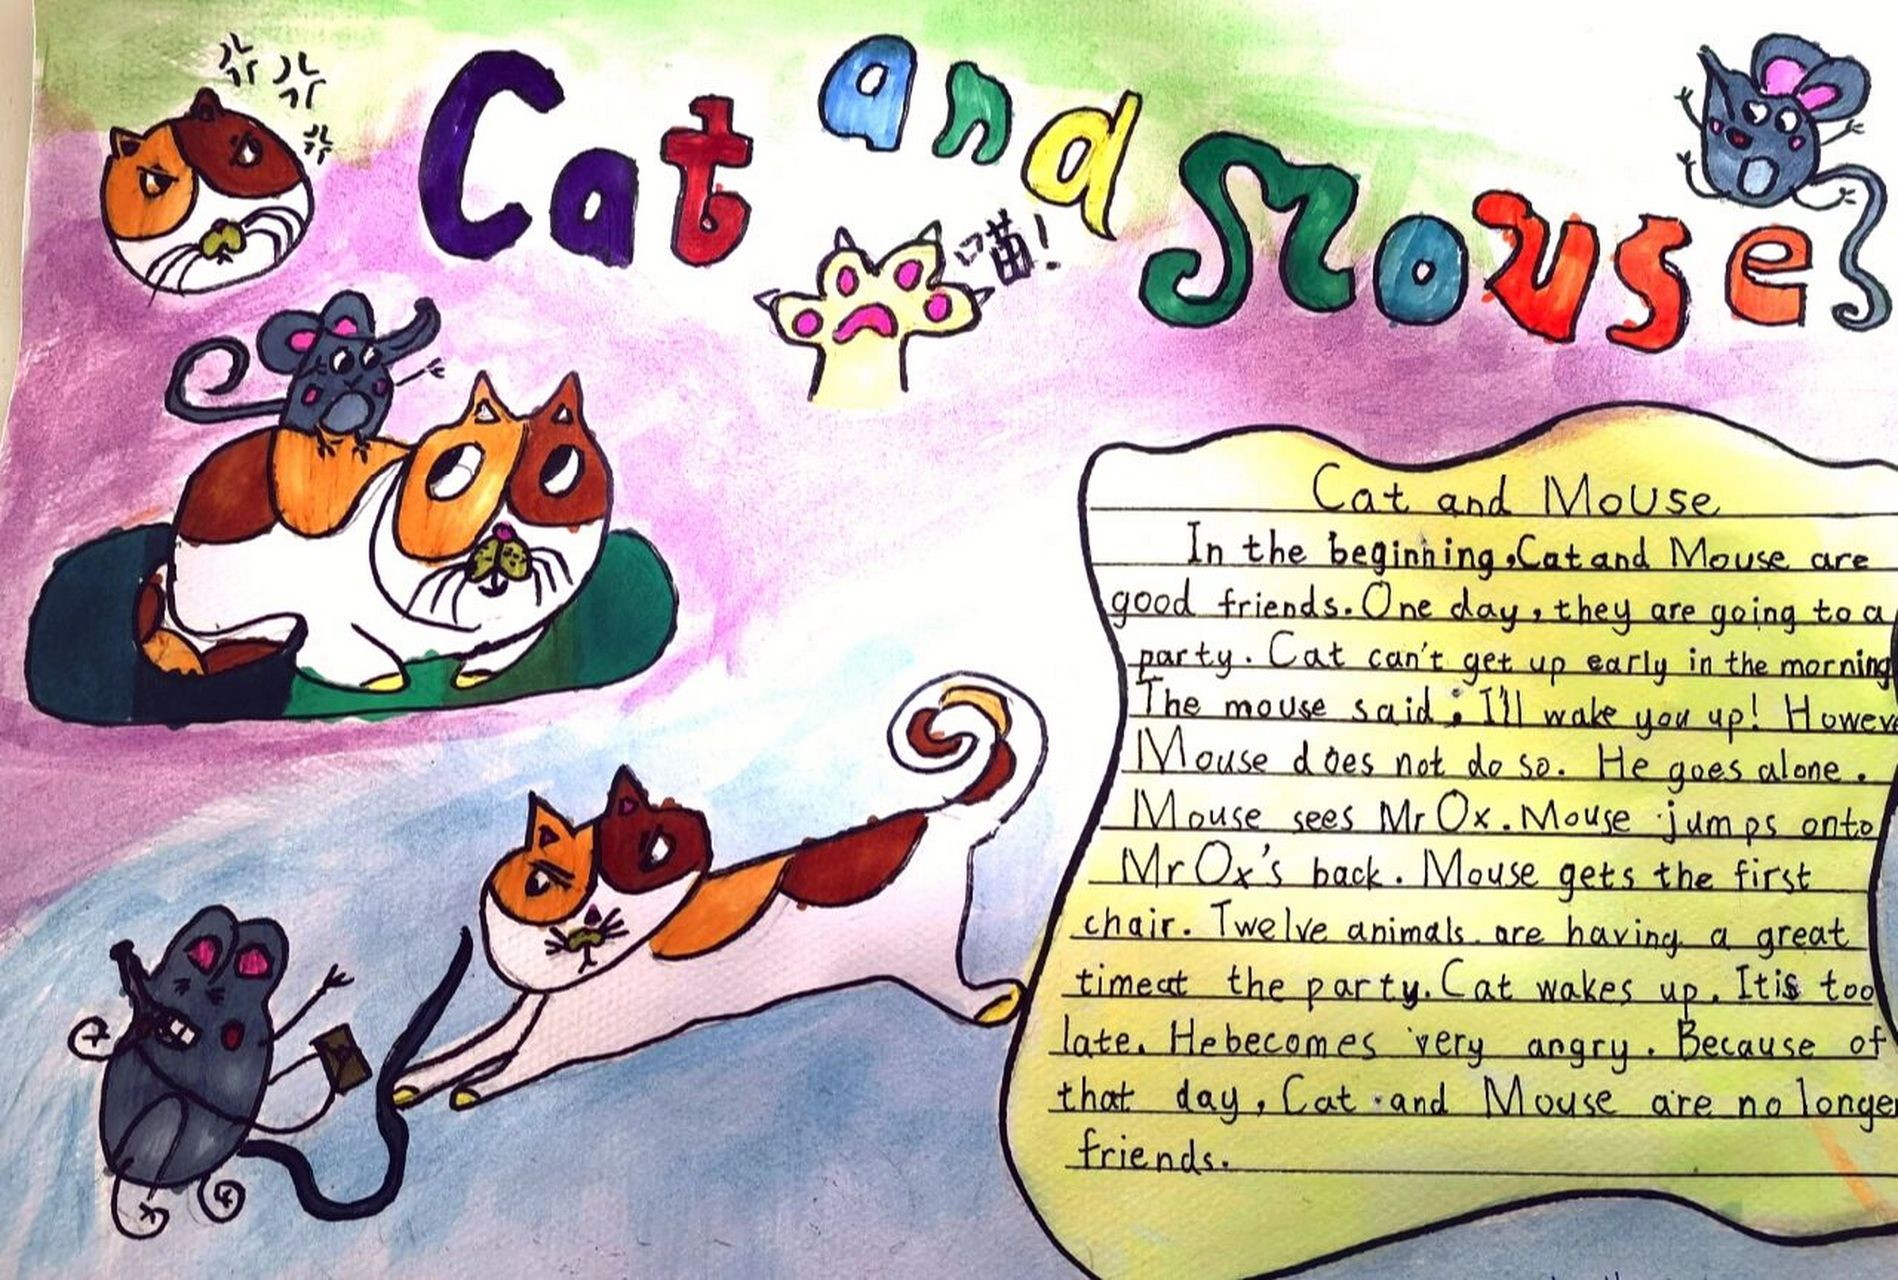 Cat and Mouse
喵!
Cat and Mouse
In the beginning,Cat and Mouse are
good friends. One day, they are going to a
party. Cat can't get up early in the morning
The mouse said: I'll wake you up! Howeve
Mouse does not do so. He goes alone.
Mouse sees Mr Ox. Mouse jumps onto
Mr Ox's back. Mouse gets the first
chair. Twelve animals are having a great
timeat the party. Cat wakes up. Itis too
late. Hebecomes very angry. Because of
that day, Cat and Mouse are no longer
friends.